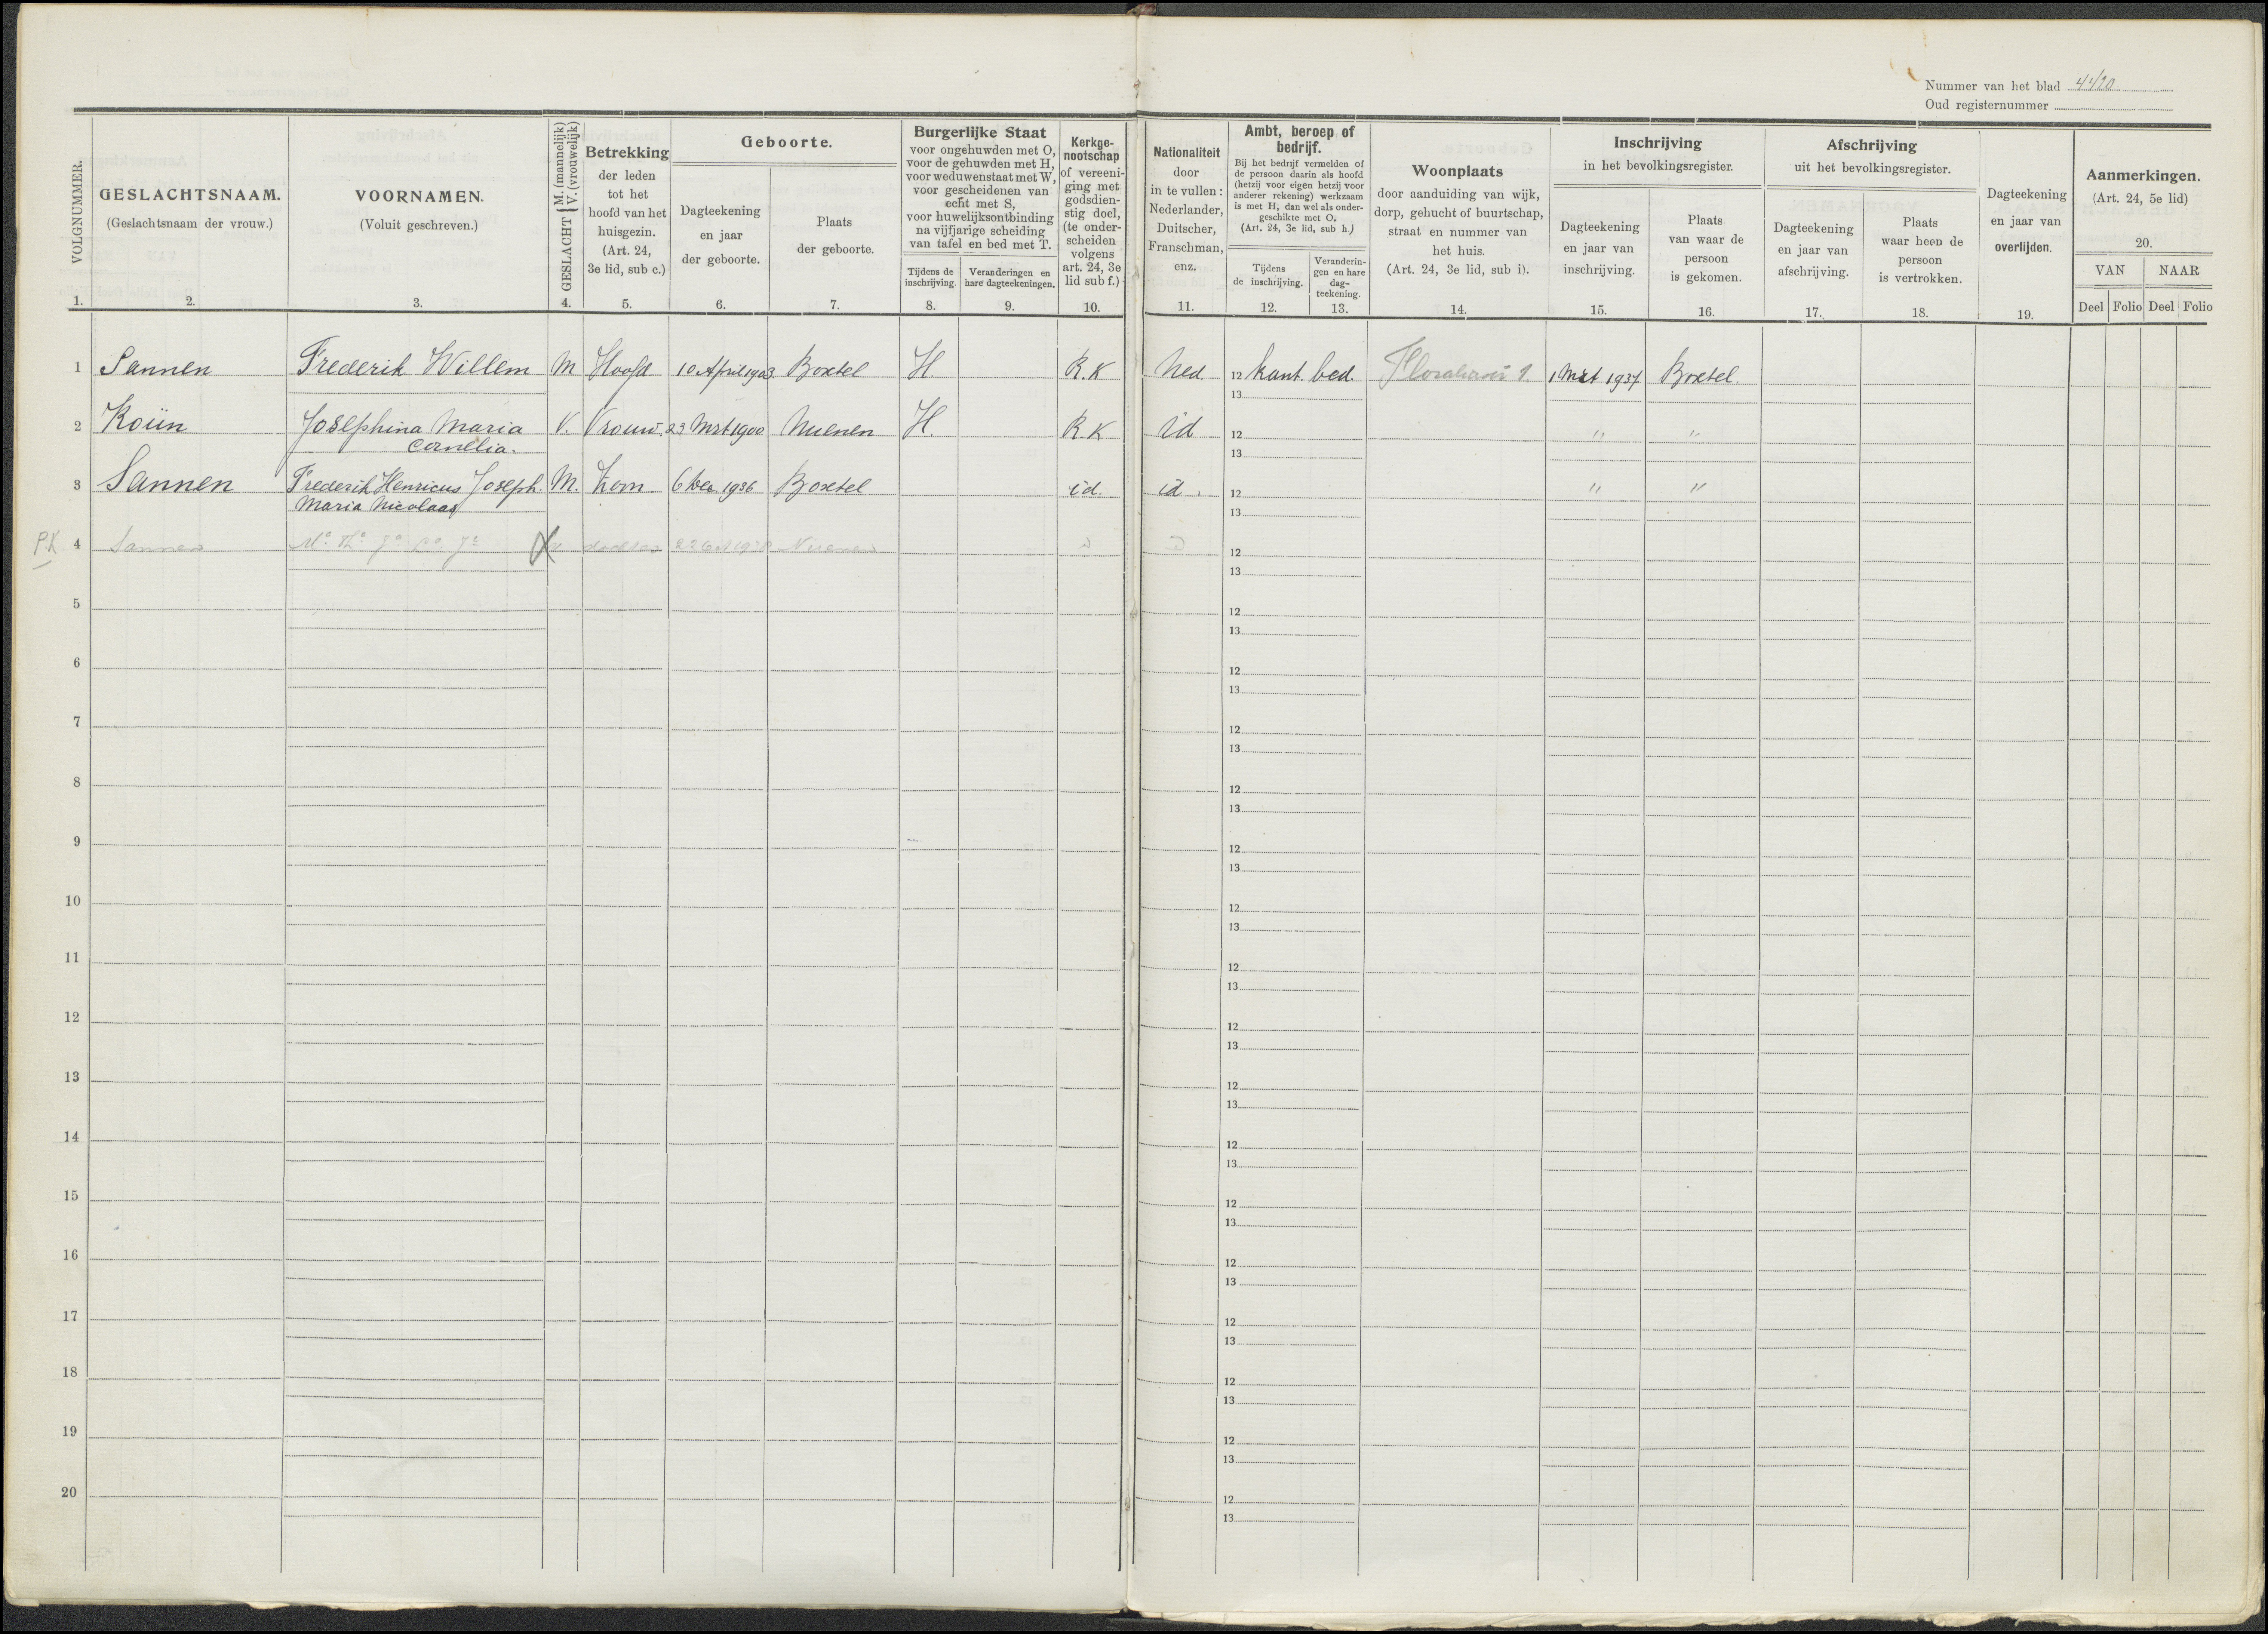 Nummer van het blad 4420
Oud registernummer
VOLGNUMMER.
1.
GESLACHTSNAAM.
(Geslachtsnaam der vrouw.)
2.
VOORNAMEN.
(Voluit geschreven.)
3.
GESLACHT { M. (mannelijk)
V. (vrouwelijk)
4.
Betrekking
der leden
tot het
hoofd van het
huisgezin.
(Art. 24,
3e lid, sub c.)
5.
Geboorte.
Dagteekening
en jaar
der geboorte.
6.
Plaats
der geboorte.
7.
Burgerlijke Staat
voor ongehuwden met O,
voor de gehuwden met H,
voor weduwenstaat met W,
voor gescheidenen van
echt met S,
voor huwelijksontbinding
na vijfjarige scheiding
van tafel en bed met T.
Tijdens de
inschrijving.
8.
Veranderingen en
hare dagteekeningen.
9.
Kerkge-
nootschap
of vereeni-
ging met
godsdien-
stig doel,
(te onder-
scheiden
volgens
art. 24, 3e
lid sub f.)
10.
Nationaliteit
door
in te vullen:
Nederlander,
Duitscher,
Franschman,
enz.
11.
Ambt, beroep of
bedrijf.
Bij het bedrijf vermelden of
de persoon daarin als hoofd
(hetzij voor eigen hetzij voor
anderer rekening) werkzaam
is met H, dan wel als onder-
geschikte met O.
(Art. 24, 3e lid, sub h.)
Tijdens
de inschrijving.
12.
Veranderin-
gen en hare
dag-
teekening.
13.
Woonplaats
door aanduiding van wijk,
dorp, gehucht of buurtschap,
straat en nummer van
het huis.
(Art. 24, 3e lid, sub i).
14.
Inschrijving
in het bevolkingsregister.
Dagteekening
en jaar van
inschrijving.
15.
Plaats
van waar de
persoon
is gekomen.
16.
Afschrijving
uit het bevolkingsregister.
Dagteekening
en jaar van
afschrijving.
17.
Plaats
waar heen de
persoon
is vertrokken.
18.
Dagteekening
en jaar van
overlijden.
19.
Aanmerkingen.
(Art. 24, 5e lid)
20.
VAN NAAR
Deel Folio Deel Folio
1 Sannen Frederik Willem M Hoofd 10 April 1903 Boxtel H. R.K Ned. 12 kant. bed. 1. 1 Mrt 1937 Boxtel.
13
2 Koiin Josephina Maria V. Vrouw. 23 Mrt 1900 Nuenen H. R.K id 12 " "
Cornelia. 13
3 Sannen Frederik Henricus Joseph. M. Zoon 6 Dec. 1936 Boxtel id. id. 12 " "
Maria Nicolaas 13
P.K 4 Sannen dochter Nuenen 12
13
5 12
13
6 12
13
7 12
13
8 12
13
9 12
13
10 12
13
11 12
13
12 12
13
13 12
13
14 12
13
15 12
13
16 12
13
17 12
13
18 12
13
19 12
13
20 12
13